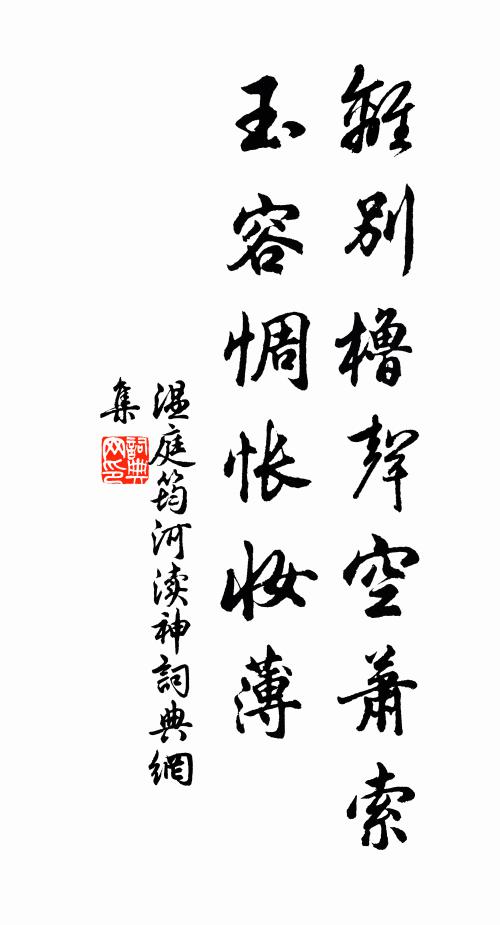 離別櫓聲空蕭索
玉容惆怅妝薄
温庭筠河渎神詞典網
集
詞典網印